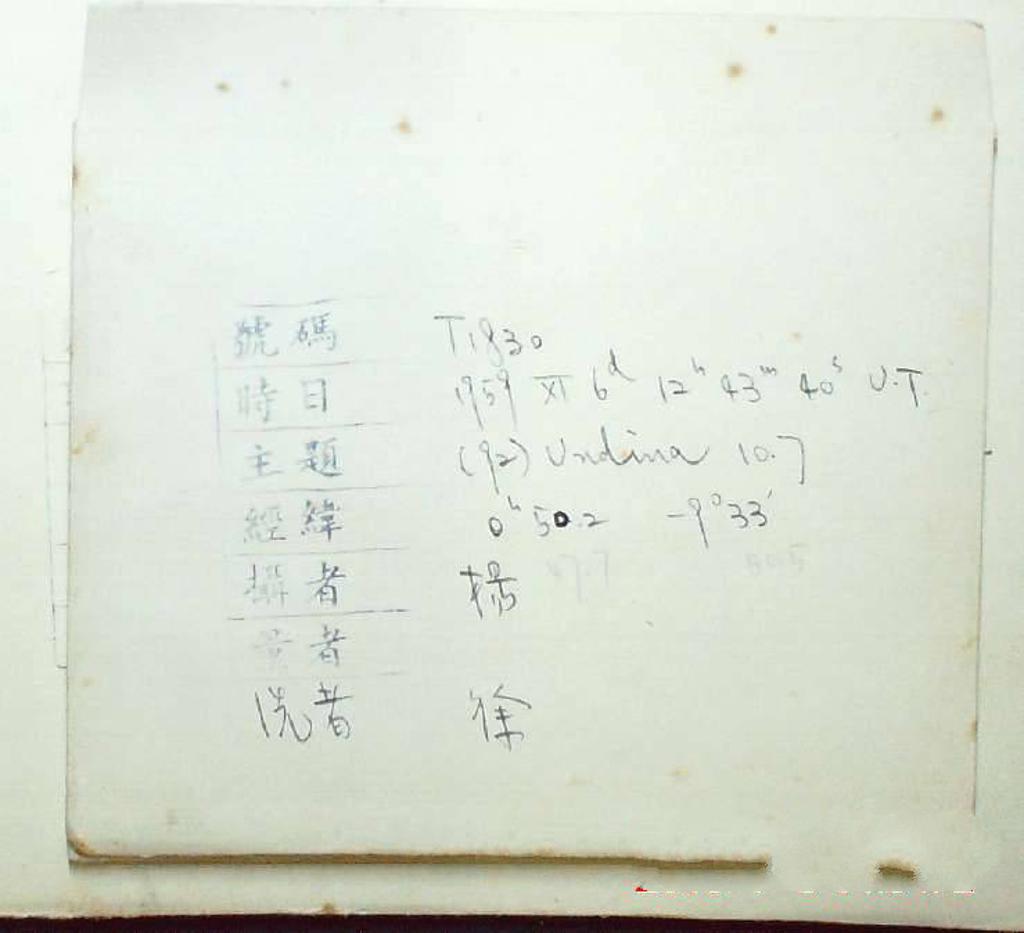 號碼 T1830
時日 1959 XI 6d 12h 43m 40s U.T.
主題 (92) Undina 10.7
經緯 0h 50.2 -9°33'
47.7 50.5
攝者 楊
者
洗者 徐